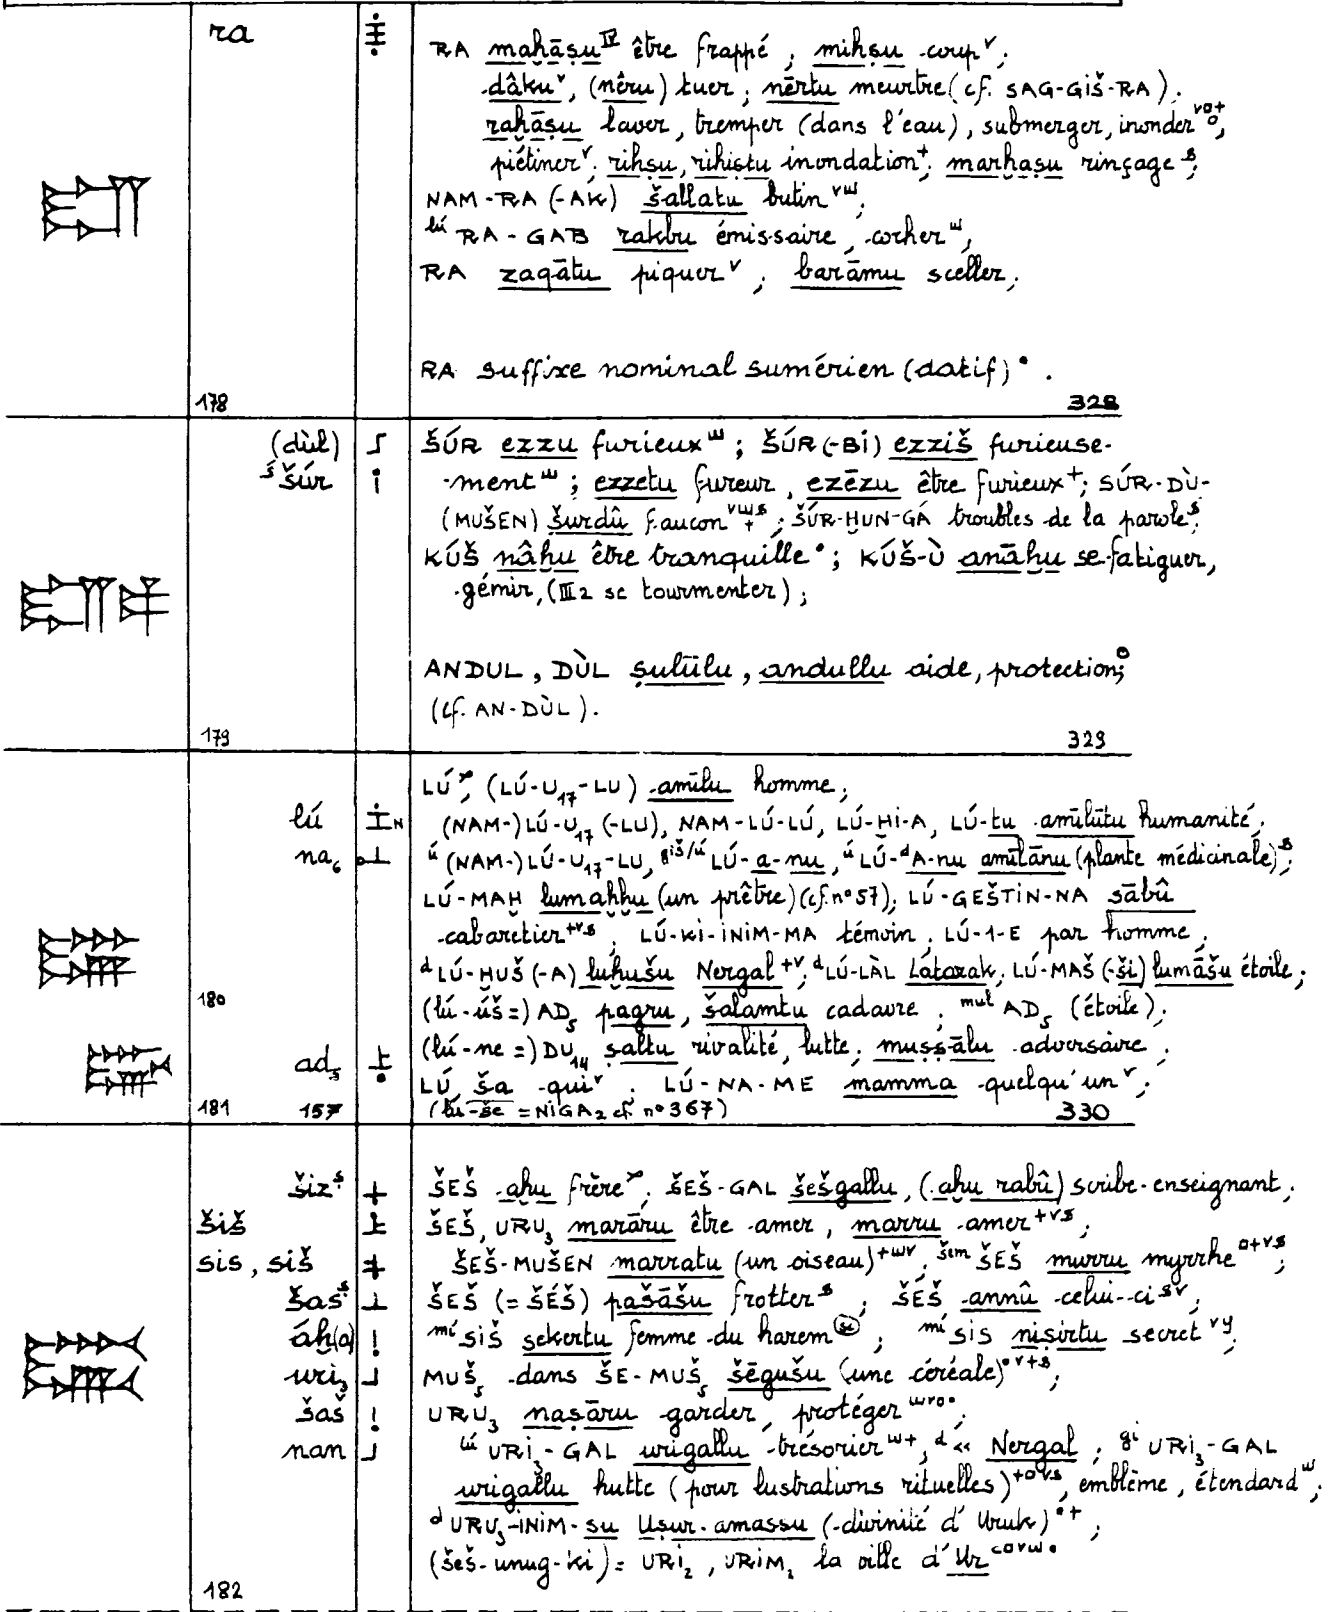 ra
RA maḫāṣu^IV être frappé, miḫṣu coup^v;
dâku^v, (nêru) tuer; nērtu meurtre (cf. SAG-GIŠ-RA).
raḫāṣu laver, tremper (dans l'eau), submerger, inonder^vo+o,
piétiner^v; riḫṣu, riḫiṣtu inondation^+; marḫaṣu rinçage^s;
NAM-RA (-AK) šallatu butin^vw;
lú RA-GAB rakbu émissaire, cocher^w,
RA zaqātu piquer^v; barāmu sceller;
RA suffixe nominal sumérien (datif)•.
178 328
(dùl) ŠÚR ezzu furieux^w; ŠÚR(-BI) ezziš furieuse-
šúr -ment^w; ezzetu fureur, ezēzu être furieux^+; SÚR-DÙ-
(MUŠEN) šurdû faucon^vws+; ŠÚR-ḪUN-GÁ troubles de la parole^s;
KÚŠ nâḫu être tranquille•; KÚŠ-Ù anāḫu se fatiguer,
gémir, (III2 se tourmenter);
ANDUL, DÙL ṣulūlu, andullu aide, protection^o;
(cf. AN-DÙL).
179 329
LÚ, (LÚ-U₁₇-LU) amīlu homme;
lú (NAM-)LÚ-U₁₇(-LU), NAM-LÚ-LÚ, LÚ-ḪI-A, LÚ-tu amīlūtu humanité;
na₆ ú(NAM-)LÚ-U₁₇-LU, giš/ú LÚ-a-nu, ú LÚ-dA-nu amīlānu (plante médicinale)^s;
LÚ-MAḪ lumaḫḫu (un prêtre) (cf. n° 57); LÚ-GEŠTIN-NA sābû
cabaretier^+vs; LÚ-KI-INIM-MA témoin; LÚ-1-E par homme;
d LÚ-ḪUŠ(-A) luḫušu Nergal^+v; d LÚ-LÀL Látarak; LÚ-MAŠ(-ši) lumāšu étoile;
180 (lú-úš=) AD₅ pagru, šalamtu cadavre; mul AD₅ (étoile);
ad₅ (lú-ne=) DU₁₄ ṣaltu rivalité, lutte; muṣṣālu adversaire;
LÚ ša qui^v. LÚ-NA-ME mamma quelqu'un^v;
181 157 (lú-še = NIGA₂ cf. n° 367) 330
šiz^s ŠEŠ aḫu frère; ŠEŠ-GAL šešgallu, (aḫu rabû) scribe-enseignant;
šiš ŠEŠ, URU₃ marāru être amer, marru amer^+vs;
sis, siš ŠEŠ-MUŠEN marratu (un oiseau)^+wv; šem ŠEŠ murru myrrhe^o+vs;
šas^s ŠEŠ (= ŠÉŠ) pašāšu frotter^s; ŠEŠ annû celui-ci^sv;
áḫ(a) mí siš sekertu femme du harem; mí sis niṣirtu secret^vy;
uri₃ MUŠ₅ dans ŠE-MUŠ₅ šēgušu (une céréale)^•v+s;
šaš URU₃ naṣāru garder, protéger^wvo•;
nan lú URI₃-GAL urigallu trésorier^w+, d « Nergal; gi URI₃-GAL
urigallu hutte (pour lustrations rituelles)^+ovs, emblème, étendard^w;
d URU₃-INIM-su Uṣur-amassu (divinité d'Uruk)^•+;
(šeš-unug-ki) = URI₂, URIM₂ la ville d'Ur^covw•
182